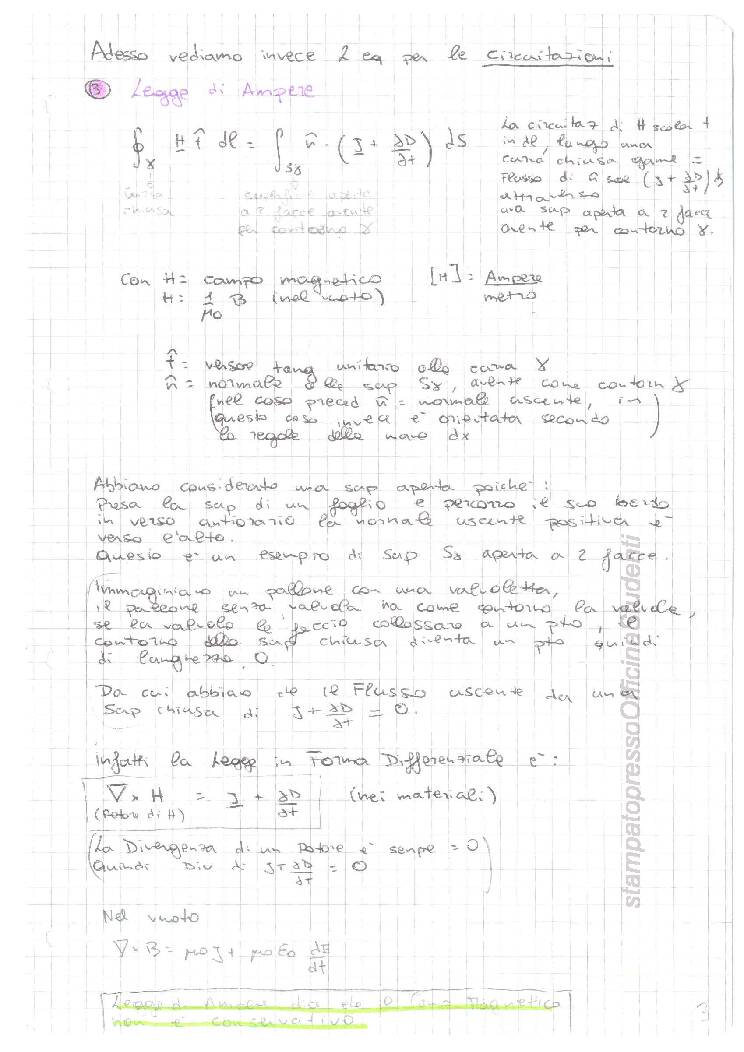 Adesso vediamo invece 2 eq per le circuitazioni
3 Legge di Ampere
∮γ H t̂ dl = ∫Sγ n̂ · (J + ∂D/∂t) dS
La circuitaz di H scalar t
in dl, lungo una
curva chiusa eguale =
Flusso di n̂ scal (J + ∂D/∂t) dS
attraverso
una sup aperta a 2 facce
avente per contorno γ.
curva
chiusa
aperta
a 2 facce avente
per contorno γ
Con H = campo magnetico
H = 1/μ0 B (nel vuoto)
[H] = Ampere/metro
t̂ = versore tang unitario alla curva γ
n̂ = normale alla sup Sγ, avente come contorn γ
(nel caso preced n̂ = normale uscente, in
questo caso invece è orientata secondo
la regola della mano dx)
Abbiamo considerato una sup aperta poiche':
Presa la sup di un foglio e percorro il suo bordo
in verso antiorario la normale uscente positiva è
verso l'alto.
Questo è un esempio di sup Sγ aperta a 2 facce.
(Immaginiamo un pallone con una valvoletta,
il pallone senza valvola ha come contorno la valvola,
se la valvola la faccio collassare a un pto, il
contorno della sup chiusa diventa un pto quindi
di lunghezza 0.
Da cui abbiamo che il Flusso uscente da una
Sup chiusa di J + ∂D/∂t = 0.
infatti la Legge in Forma Differenziale è:
∇ × H = J + ∂D/∂t (nei materiali)
(Rotore di H)
(La Divergenza di un Rotore è sempre = 0
Quindi Div di J + ∂D/∂t = 0)
Nel vuoto
∇ × B = μ0 J + μ0 ε0 dE/dt
Legge di Ampere dice che il Campo Magnetico
non è conservativo
3
stampatopressoOfficinadStudenti